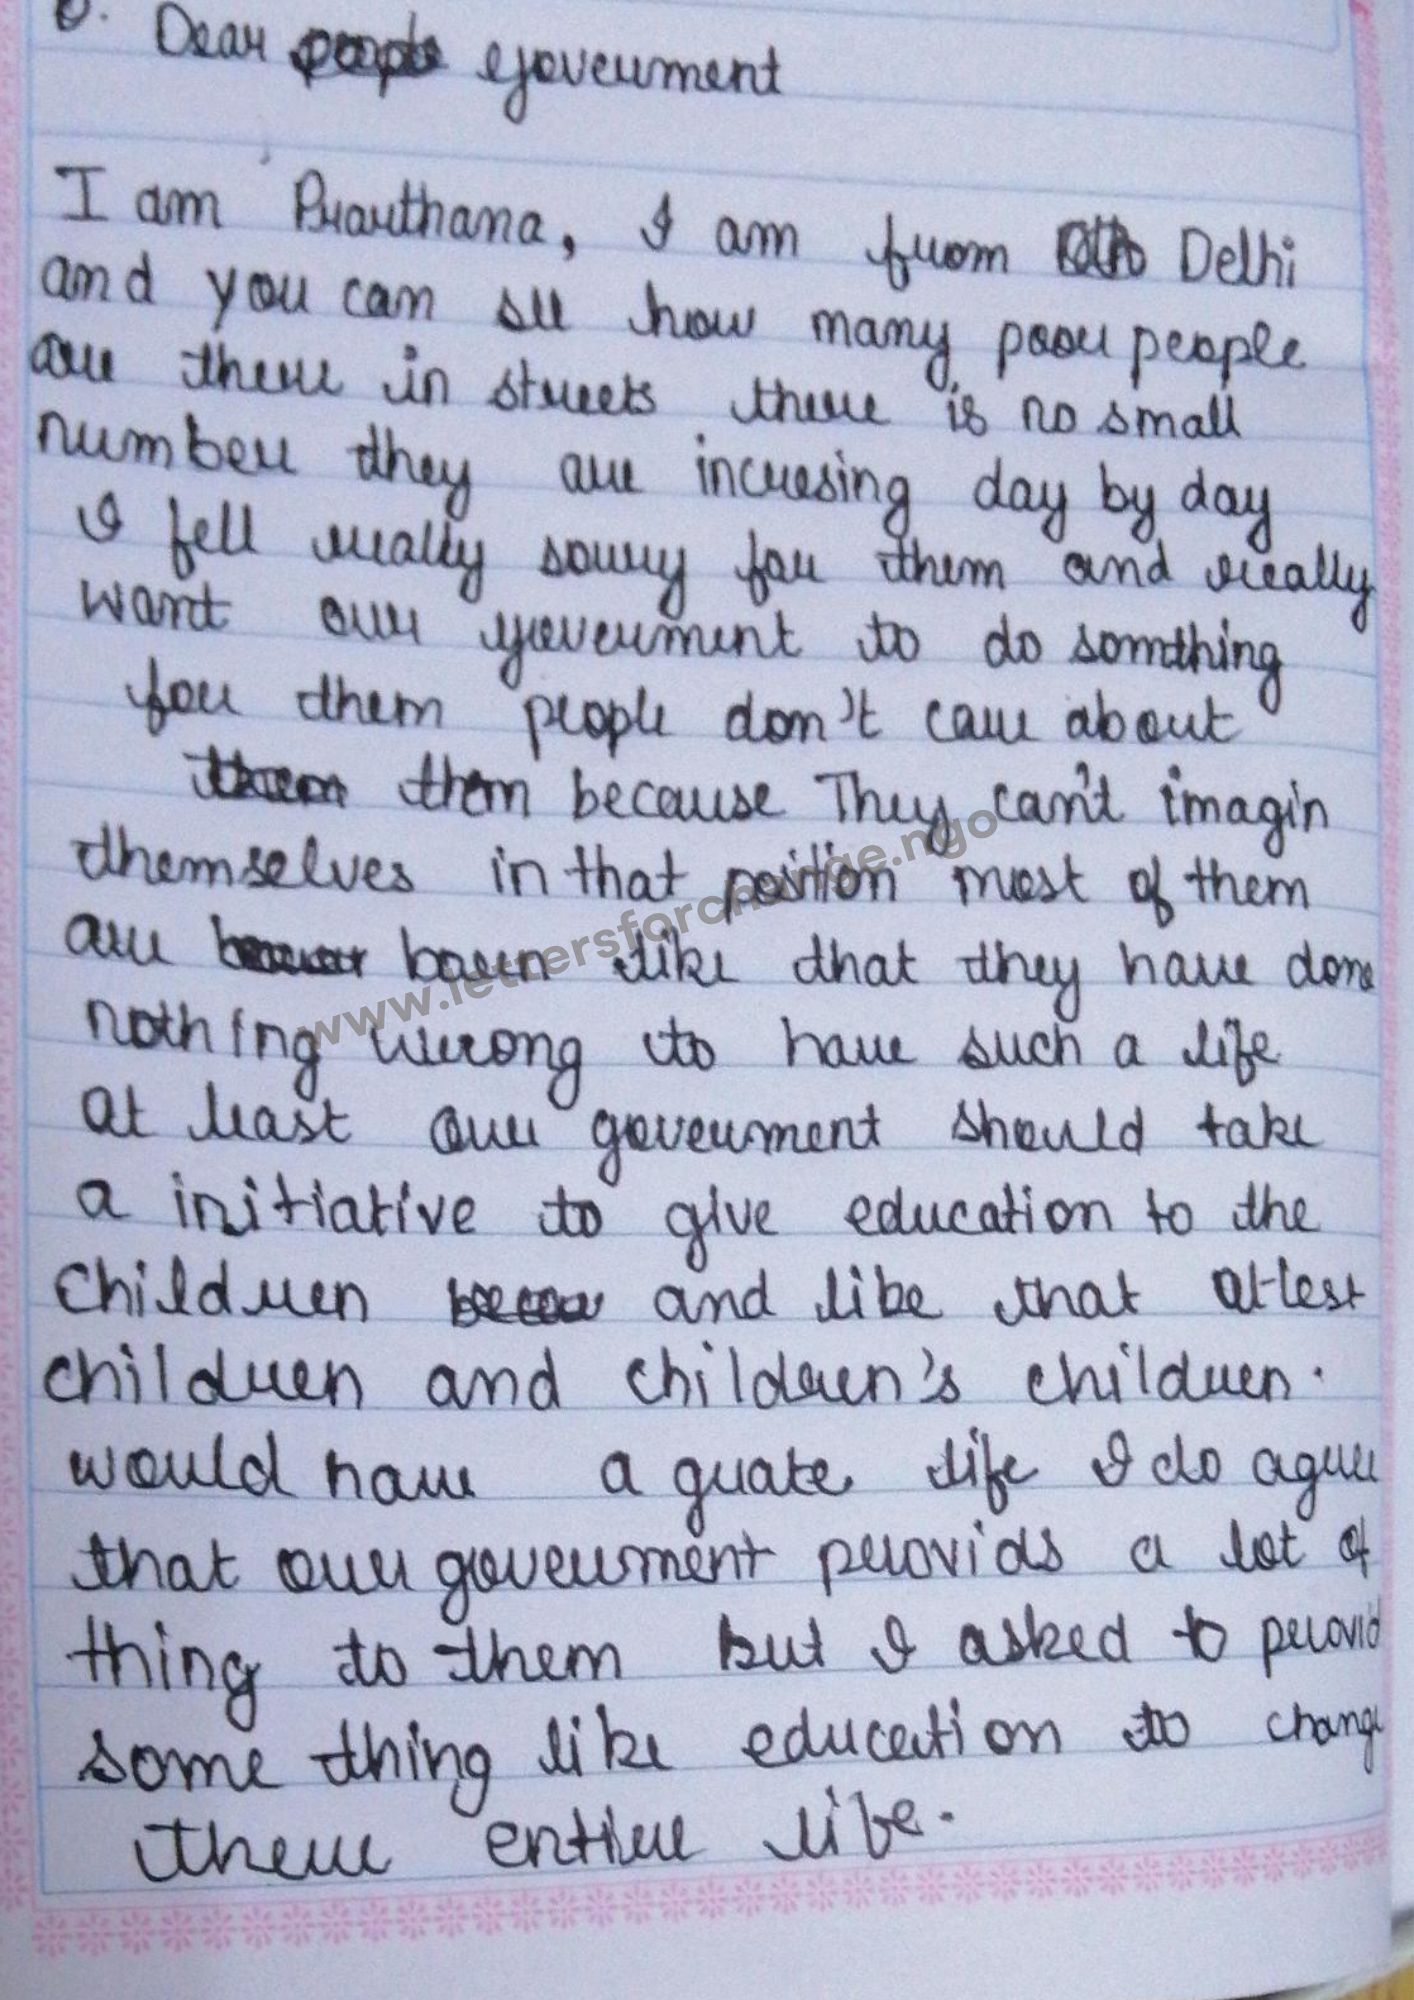 Dear government
I am Prarthana, I am from Delhi
and you can see how many poor people
are there in streets there is no small
number they are incresing day by day
I fell really sorry for them and really
want our government to do somthing
for them people don't care about
them them because They can't imagin
themselves in that position most of them
are boren like that they have done
nothing wrong to have such a life
at least our goverment should take
a initiative to give education to the
children and like that atlest
children and children's children.
would have a grate life I do agree
that our goverment provids a lot of
thing to them but I asked to provid
some thing like education to change
there entire life.
www.lettersforchange.ngo